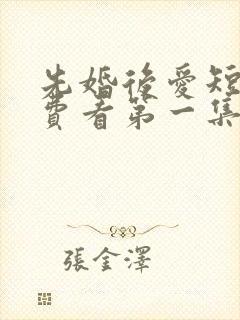 先婚後愛短
費看第一集
張金澤